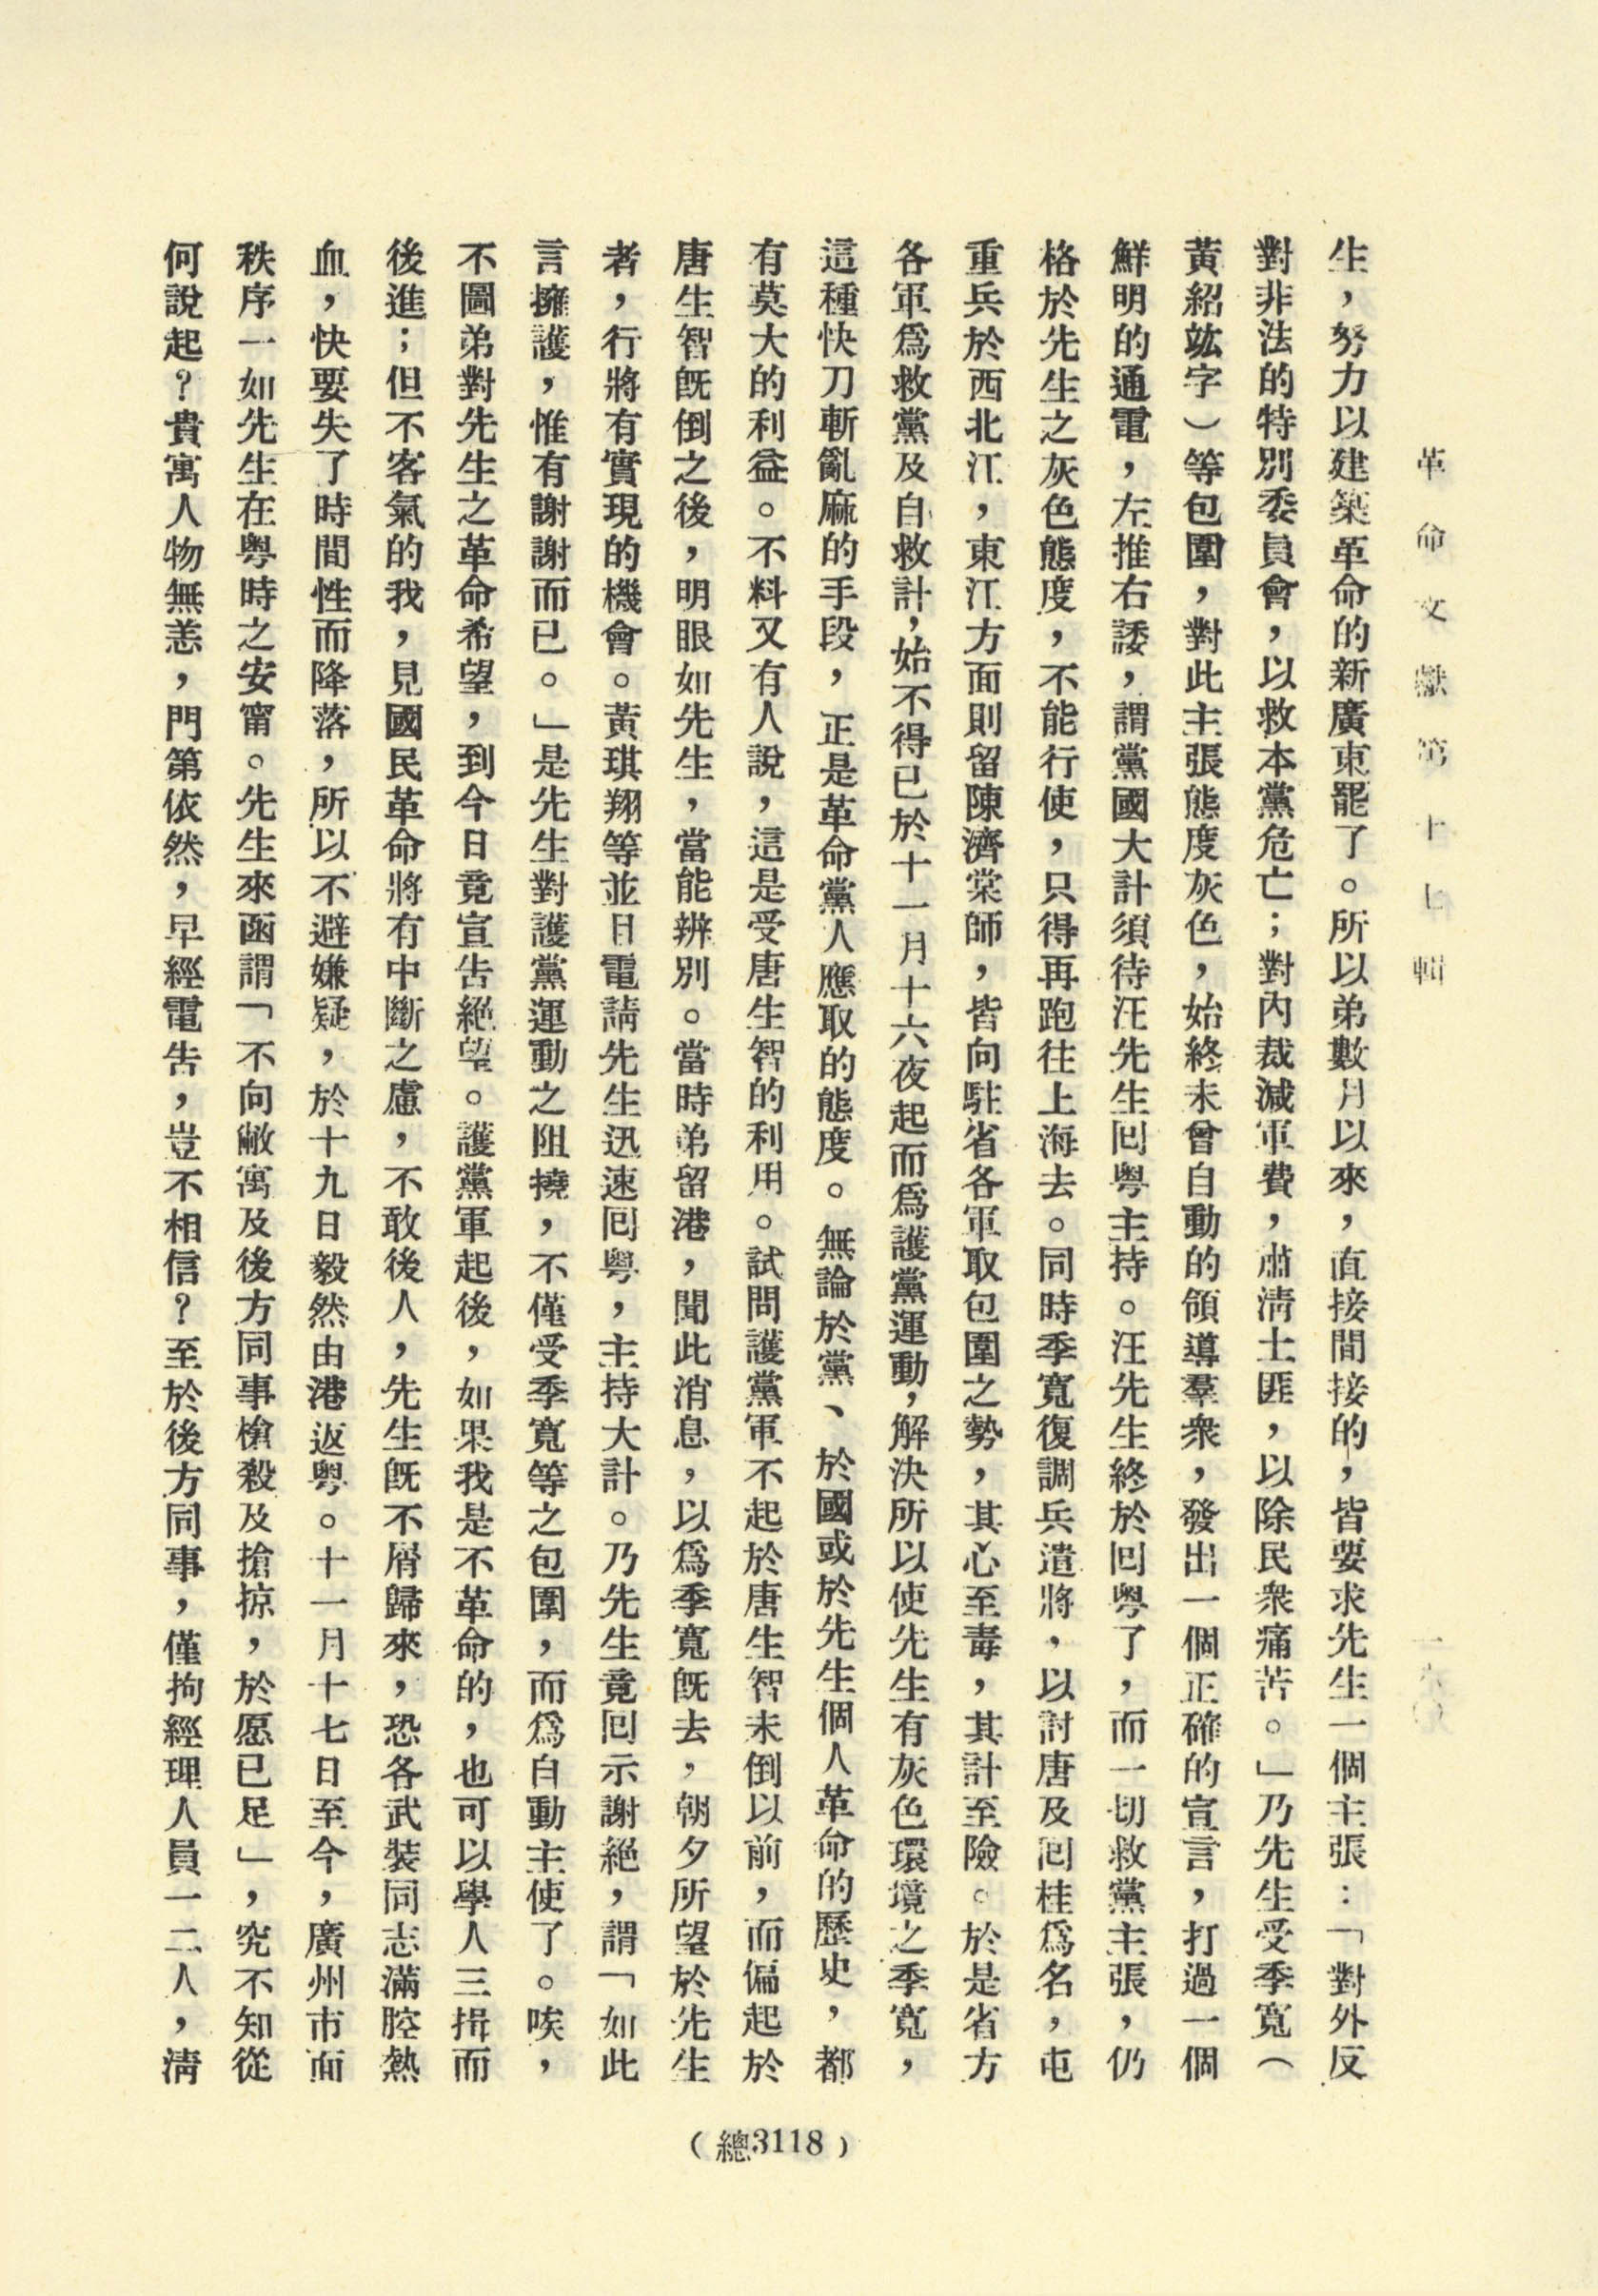 革命文獻第十七輯
一六〇
生，努力以建築革命的新廣東罷了。所以弟數月以來，直接間接的，皆要求先生一個主張：「對外反
對非法的特別委員會，以救本黨危亡；對內裁減軍費，肅清土匪，以除民衆痛苦。」乃先生受季寬（
黃紹竑字）等包圍，對此主張態度灰色，始終未曾自動的領導羣衆，發出一個正確的宣言，打過一個
鮮明的通電，左推右諉，謂黨國大計須待汪先生囘粵主持。汪先生終於囘粵了，而一切救黨主張，仍
格於先生之灰色態度，不能行使，只得再跑往上海去。同時季寬復調兵遣將，以討唐及囘桂爲名，屯
重兵於西北江，東江方面則留陳濟棠師，皆向駐省各軍取包圍之勢，其心至毒，其計至險。於是省方
各軍爲救黨及自救計，始不得已於十一月十六夜起而爲護黨運動，解決所以使先生有灰色環境之季寬，
這種快刀斬亂麻的手段，正是革命黨人應取的態度。無論於黨、於國或於先生個人革命的歷史，都
有莫大的利益。不料又有人說，這是受唐生智的利用。試問護黨軍不起於唐生智未倒以前，而偏起於
唐生智旣倒之後，明眼如先生，當能辨別。當時弟留港，聞此消息，以爲季寬旣去，朝夕所望於先生
者，行將有實現的機會。黃琪翔等並日電請先生迅速囘粵，主持大計。乃先生竟囘示謝絕，謂「如此
言擁護，惟有謝謝而已。」是先生對護黨運動之阻撓，不僅受季寬等之包圍，而爲自動主使了。唉，
不圖弟對先生之革命希望，到今日竟宣告絕望。護黨軍起後，如果我是不革命的，也可以學人三揖而
後進；但不客氣的我，見國民革命將有中斷之慮，不敢後人，先生旣不屑歸來，恐各武裝同志滿腔熱
血，快要失了時間性而降落，所以不避嫌疑，於十九日毅然由港返粵。十一月十七日至今，廣州市面
秩序一如先生在粵時之安甯。先生來函謂「不向敝寓及後方同事槍殺及搶掠，於愿已足」，究不知從
何說起？貴寓人物無恙，門第依然，早經電告，豈不相信？至於後方同事，僅拘經理人員一二人，淸
（總3118）